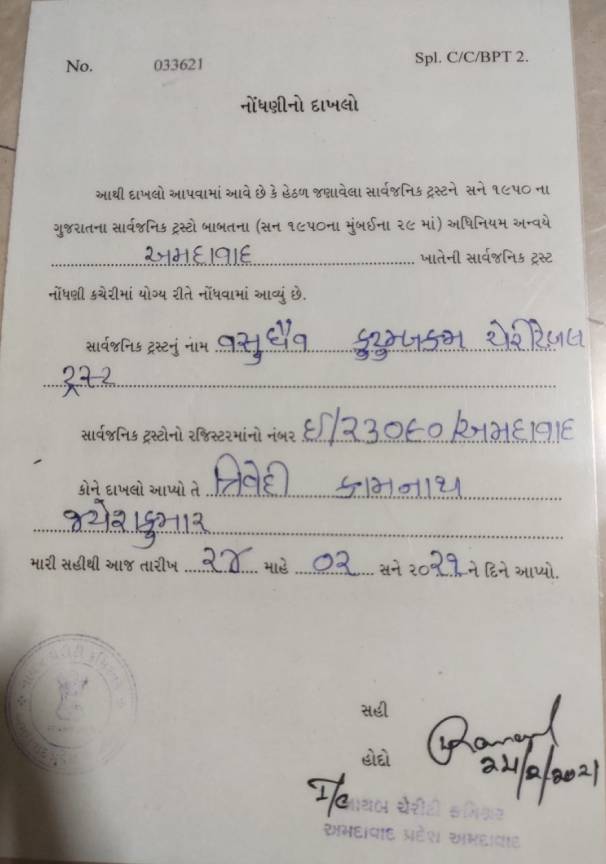 No. 033621 Spl. C/C/BPT 2.
નોંધણીનો દાખલો
આથી દાખલો આપવામાં આવે છે કે હેઠળ જણાવેલા સાર્વજનિક ટ્રસ્ટને સને ૧૯૫૦ ના
ગુજરાતના સાર્વજનિક ટ્રસ્ટો બાબતના (સન ૧૯૫૦ના મુંબઈના ૨૯ માં) અધિનિયમ અન્વયે
અમદાવાદ ખાતેની સાર્વજનિક ટ્રસ્ટ
નોંધણી કચેરીમાં યોગ્ય રીતે નોંધવામાં આવ્યું છે.
સાર્વજનિક ટ્રસ્ટનું નામ વસુધૈવ કુટુમ્બકમ ચેરીટેબલ
ટ્રસ્ટ
સાર્વજનિક ટ્રસ્ટોનો રજિસ્ટરમાંનો નંબર ઈ/૨૩૦૯૦/અમદાવાદ
કોને દાખલો આપ્યો તે ત્રિવેદી કામનાથ
જયેશકુમાર
મારી સહીથી આજ તારીખ ૨૪ માહે ૦૨ સને ૨૦૨૧ ને દિને આપ્યો.
સહી
હોદો
24/2/2021
I/c નાયબ ચેરીટી કમિશ્નર
અમદાવાદ પ્રદેશ અમદાવાદ